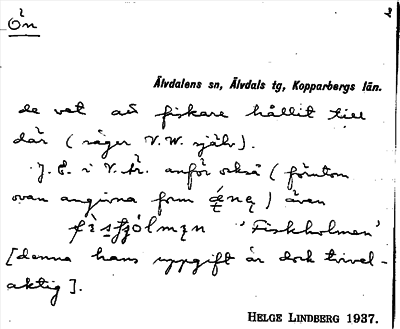 Ön
2
Älvdalens sn, Älvdals tg, Kopparbergs län.
de vet att fiskare hållit till
där (säger V. W. själv).
J. E. i V. tr. anför också (förutom
ovan angivna form
) även
'Fiskholmen'
[denna hans uppgift är dock tvivel-
aktig].
HELGE LINDBERG 1937.